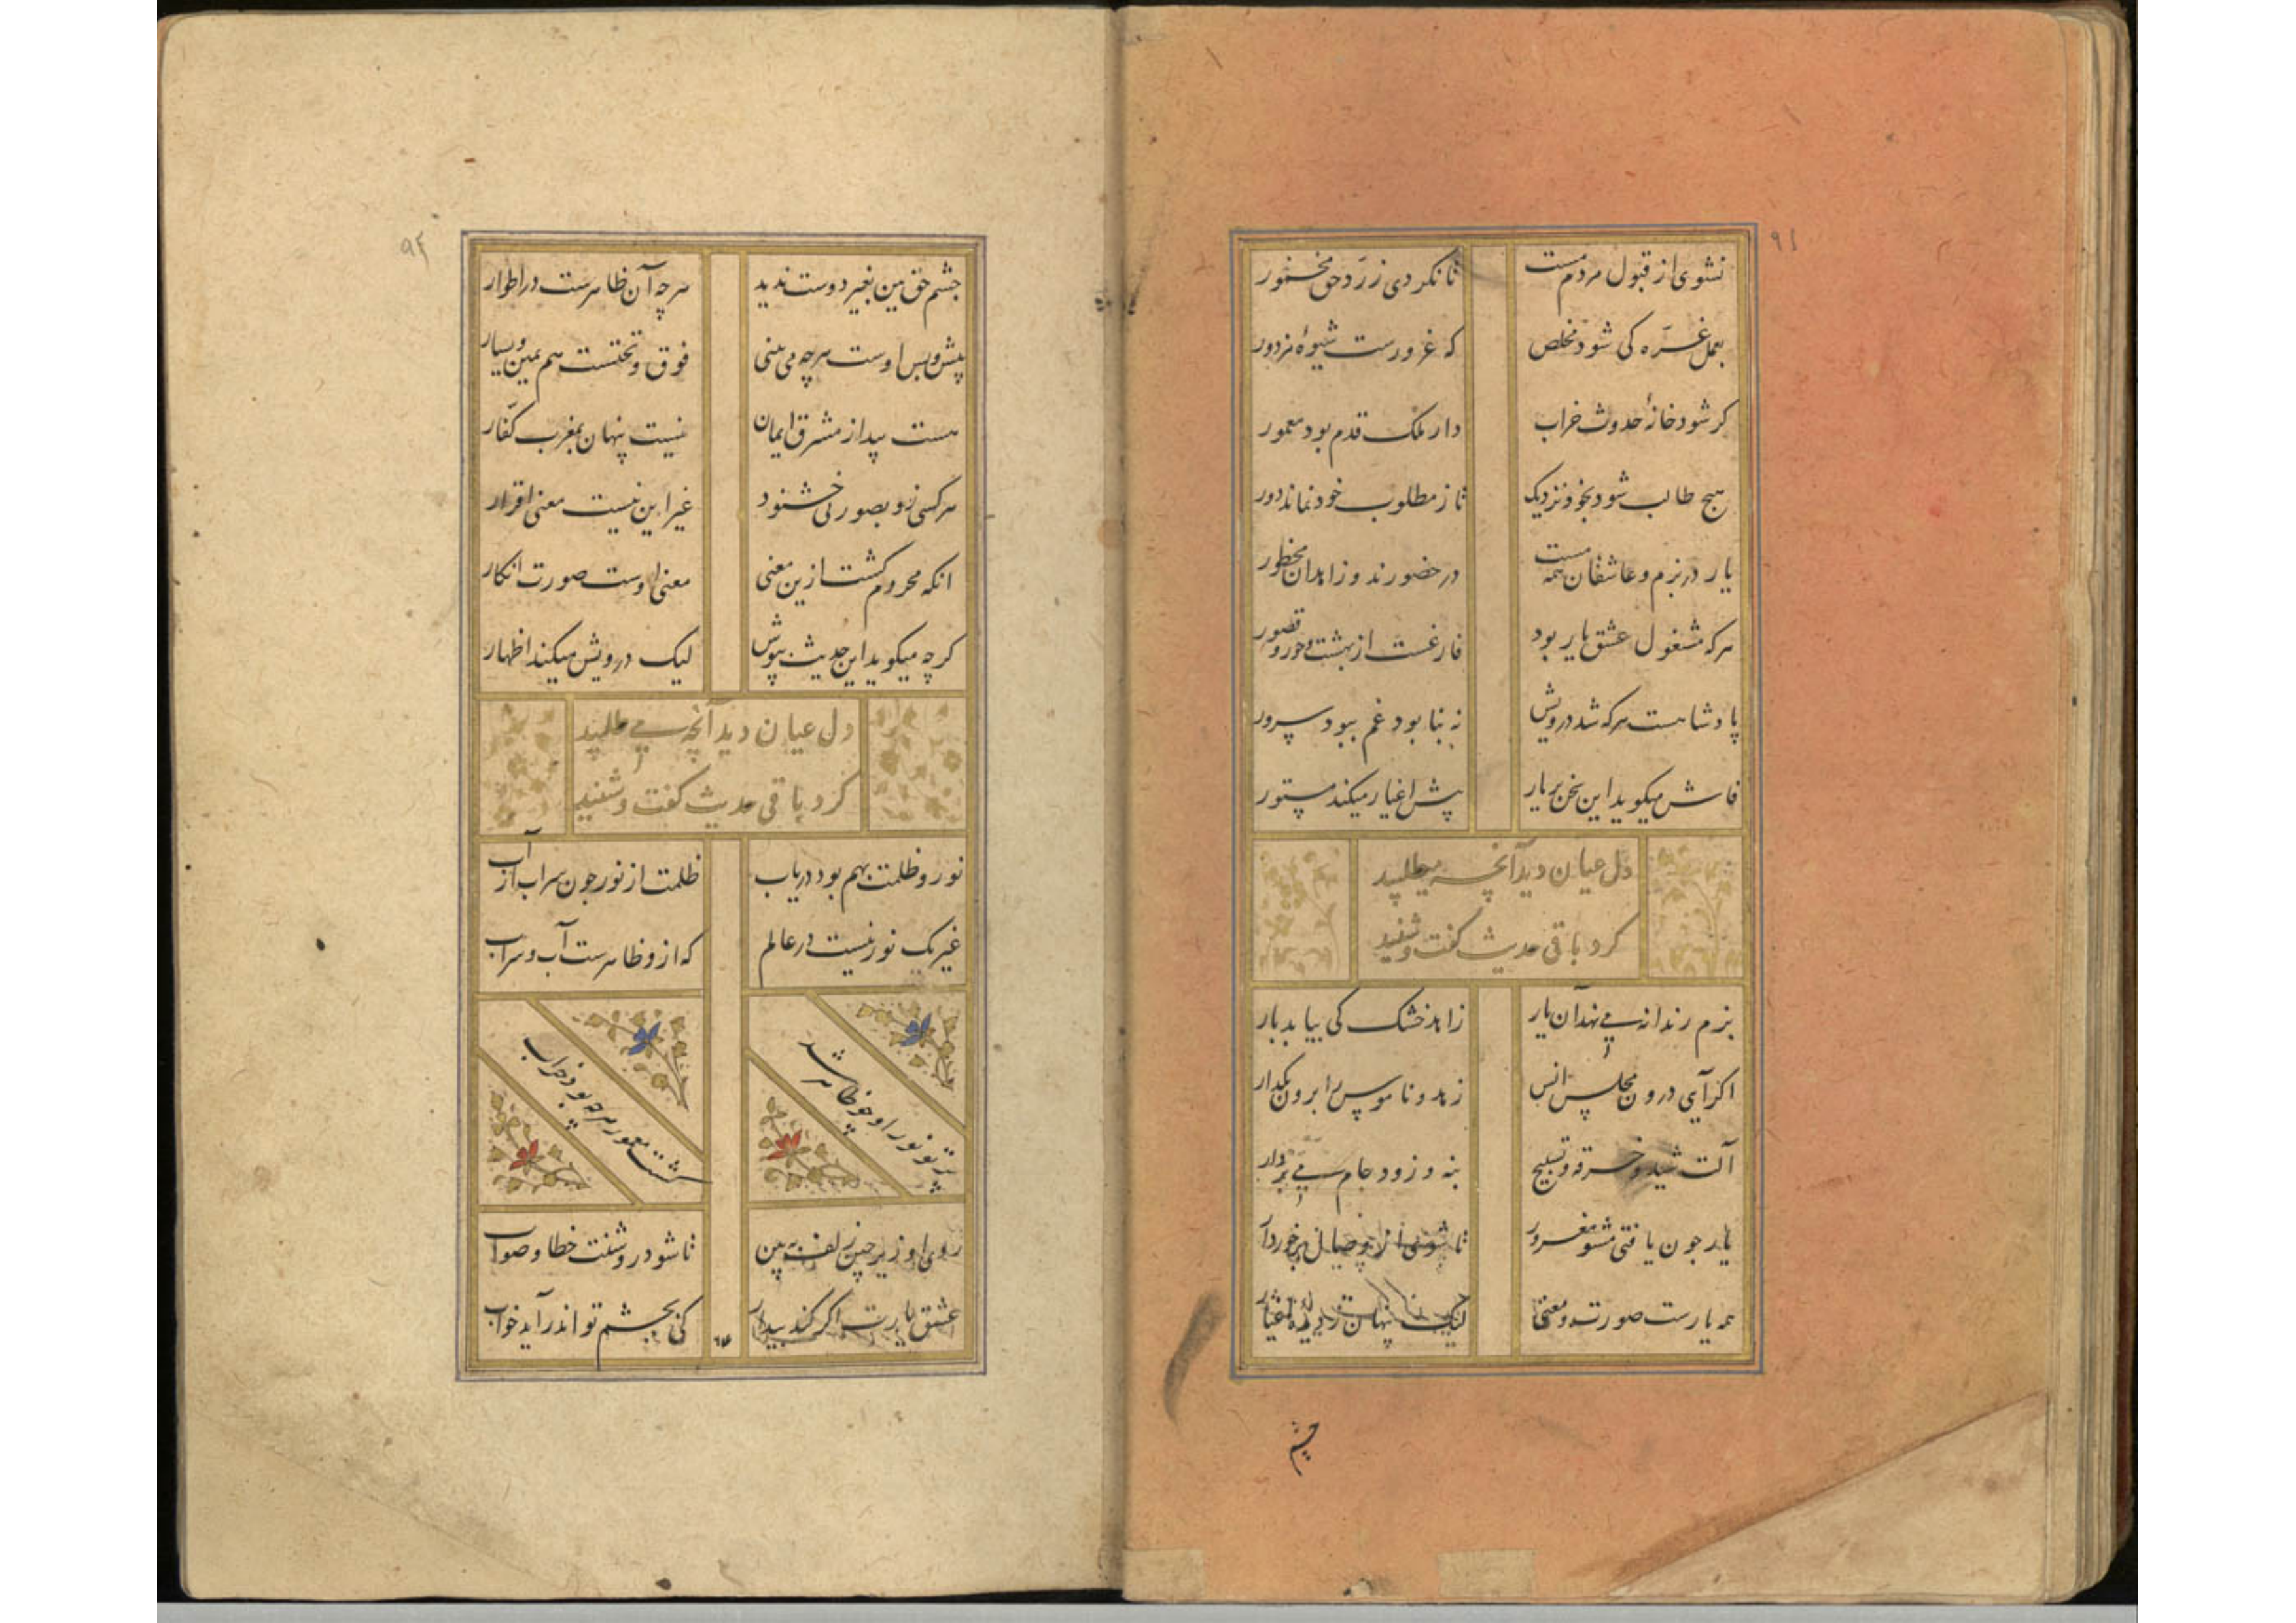 ۹۱
نشوی از قبول مردم مست تا نکردی ز ردّ حق مخمور
بعمل غرّه کی شود مخلص که غرورست شیوهٔ مزدور
کر شود خانهٔ حدوث خراب دار ملک قدم بود معمور
هیچ طالب شود بخود نزدیک تا ز مطلوب خود نماند دور
یار در بزم و عاشقان همه مست در حضورند و زاهدان محظور
هرکه مشغول عشق یار بود فارغست از بهشت و حور و قصور
پادشاهست هرکه شد درویش نه بنا بود غم ببود سرور
فاش میکوید این سخن بر یار پیش اغیار میکند مستور
دل عیان دید آنچه میطلبید
کرد باقی حدیث کفت و شنید
بزم رندانه می نهد آن یار زاهد خشک کی بیابد بار
اکر آیی درون مجلس انس زهد و ناموس را برون بکذار
آلت شید و خرقه و تسبیح بنه و زود جام می بردار
یار جون یافتی مشو مغرور تا شوی از وصال برخوردار
همه یارست صورت و معنی لیک پنهان ز دیدهٔ اغیار
چشم
۹۲
جشم حق بین بغیر دوست ندید هرچه آن ظاهرست در اطوار
پیش و پس اوست هرچه می بینی فوق و تحتست هم یمین و یسار
هست پیدا ز مشرق ایمان نیست پنهان بمغرب کفّار
هرکسی زو بصورتی خشنود غیر این نیست معنی اقرار
انکه محروم کشت ازین معنی معنی اوست صورت انکار
کرچه میکوید این حدیث بپوش لیک درویش میکند اظهار
دل عیان دید آنچه می طلبید
کرد باقی حدیث کفت و شنید
نور و ظلمت بهم بود دریاب ظلمت از نور جون سراب از آب
غیر یک نور نیست در عالم که ازو ظاهرست آب و سراب
پرتو نور او چو ظاهر شد کشت معمور هرچه بود خراب
روی او زیر چین زلف ببین تا شود روشنت خطا و صواب
عشق یارت اکر کند بیدار کی بجشم تو اندر آید خواب